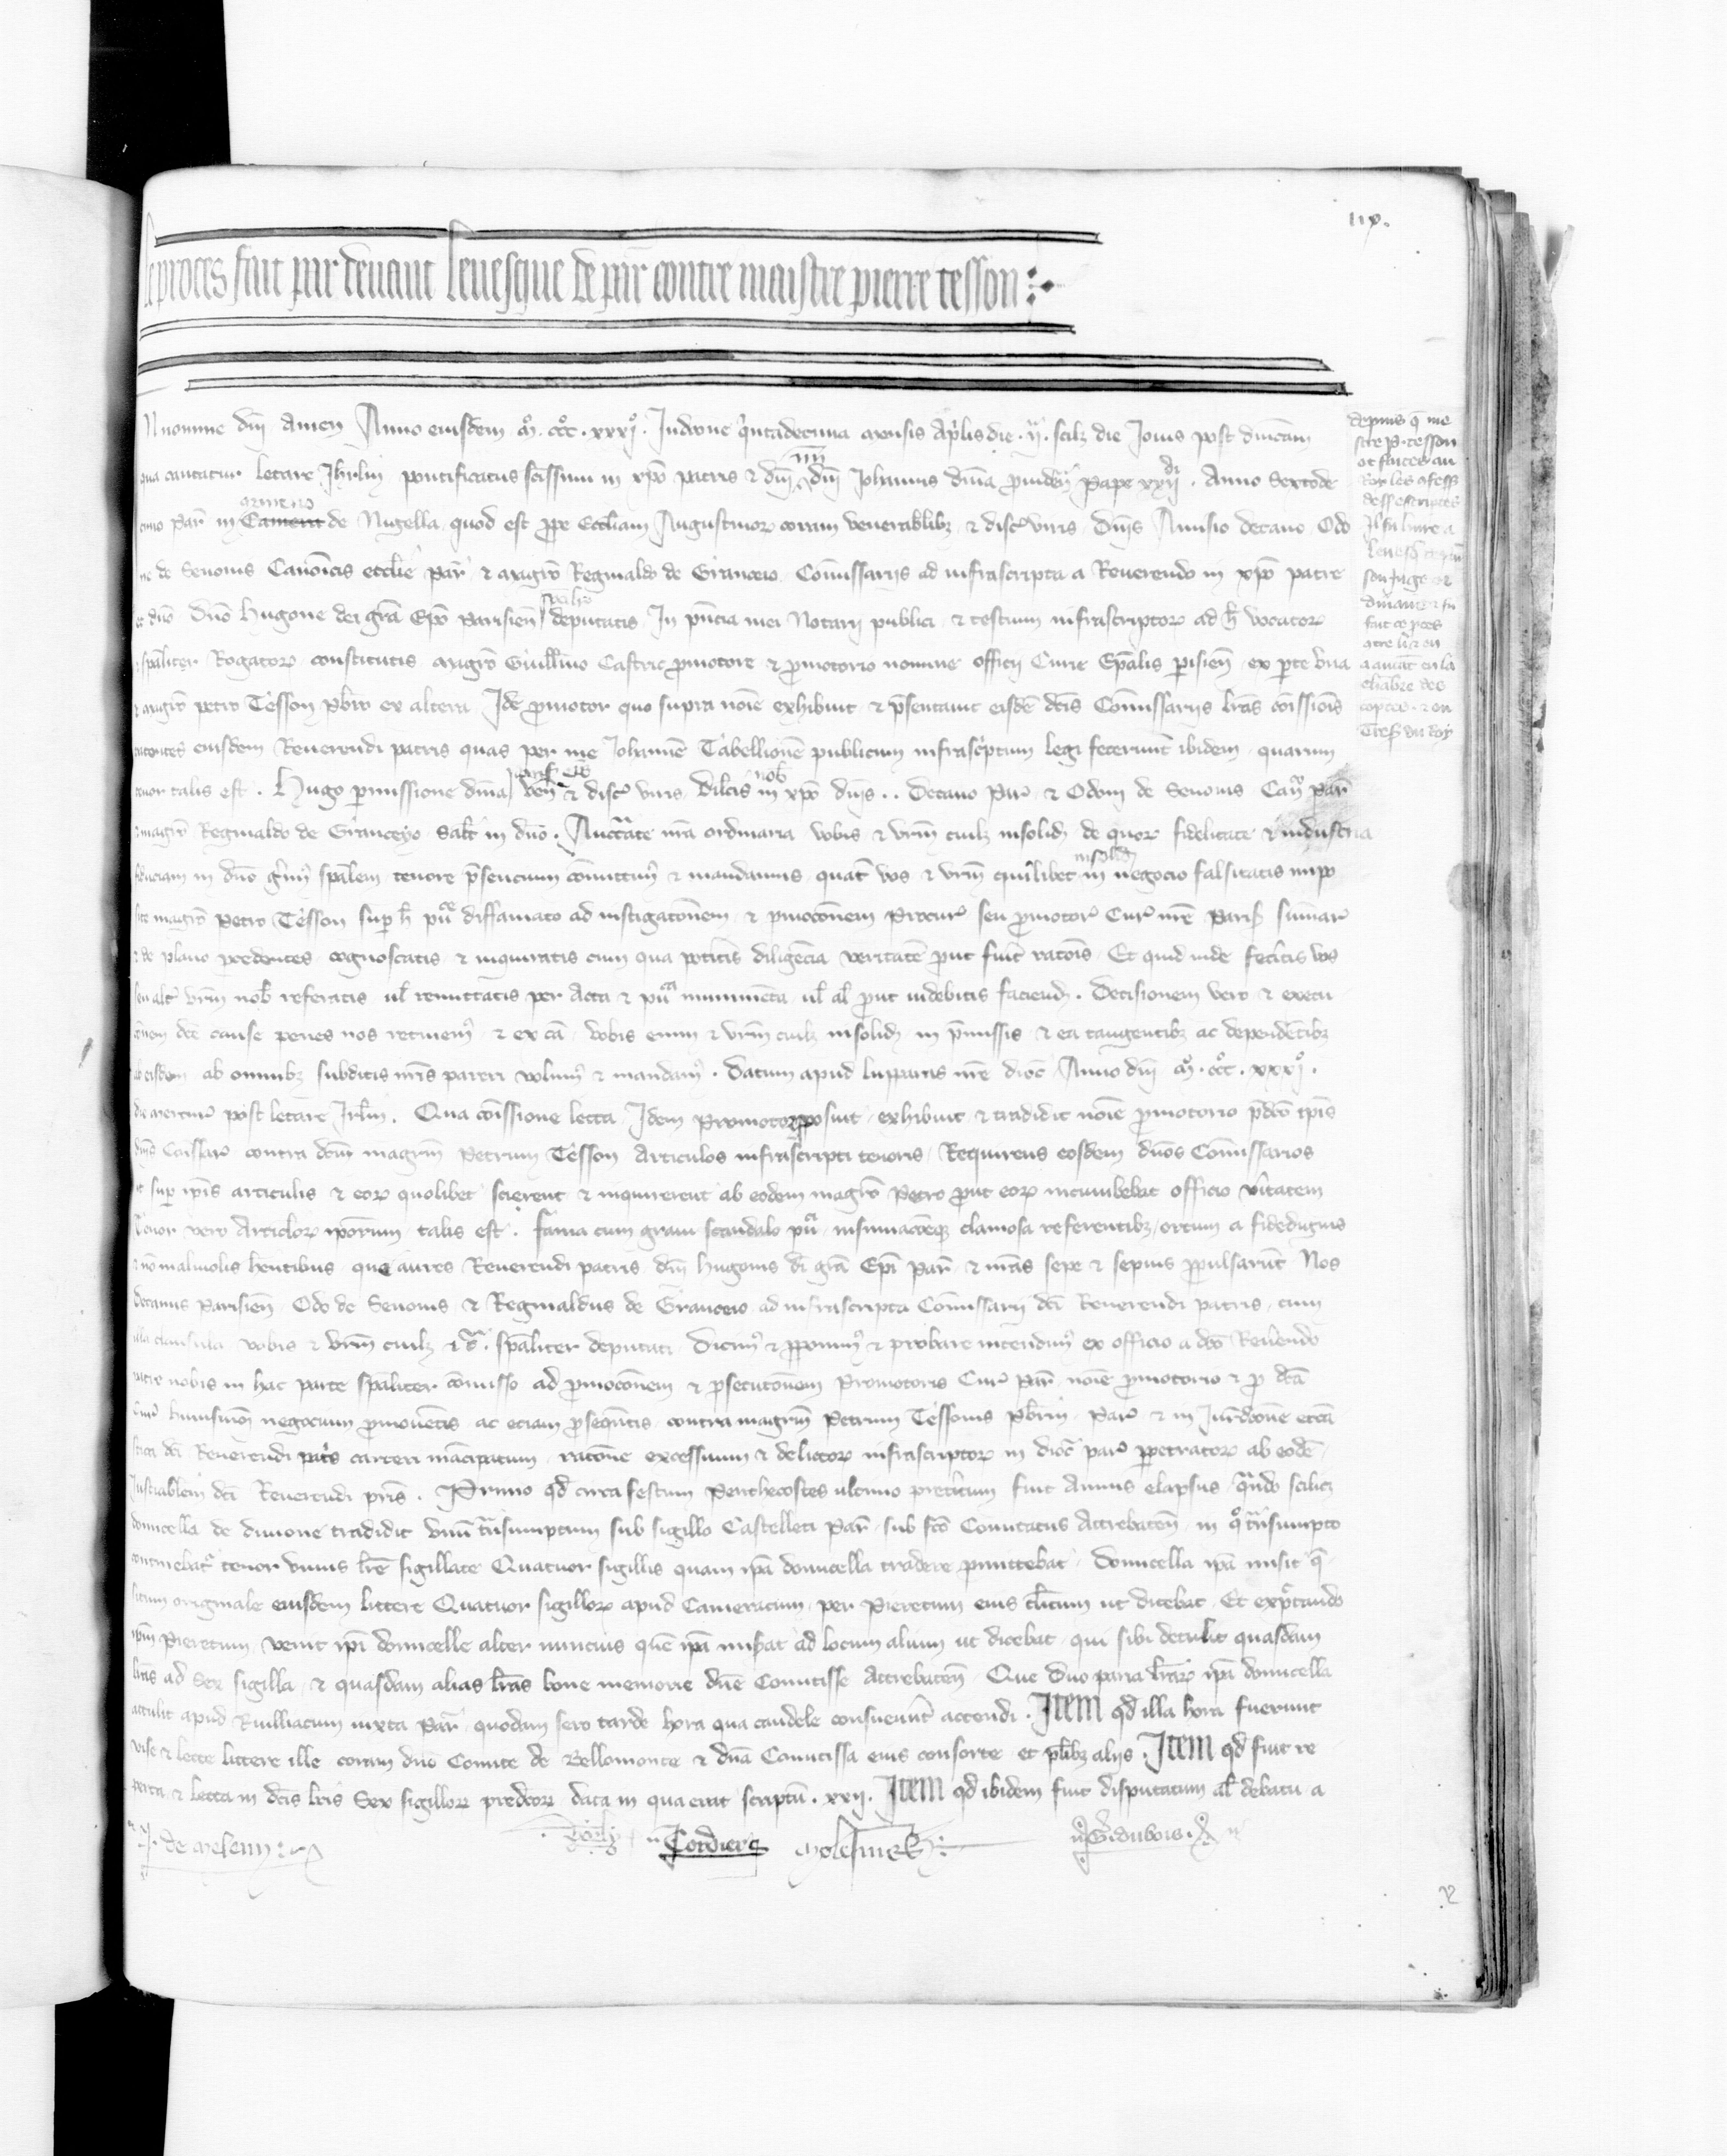 iiix.
le proces fait par devant levesque de par̄ contre maistre pierre tesson
N nomine dn̄i Amen Anno eiusdem mͦ. cccͦ. xxxjͦ. Indc̄one qͥntadecima mensis Ap̄lis die. ij. scilꝫ die Jovis post dn̄icam
qua cantatur letare Jhrl̄m pontificatus sc̄issimi in xp̄o patris & dn̄i dn̄i Johannis diūa provideñ Pape xxij. Anno Sextode
cimo Par̄ in Camera armerio de Nigella quod est ꝓpe Ecc̄liam Augustinoꝝ coram venerabilibꝫ & discꝰ viris Dn̄is Amisio decano Odo
ne de Senonis Canōicis ecclie par̄ & magrō Reginaldo de Granceio Cōmissarijs ad infrascripta a Reverendo in xp̄o patre
ac dn̄o Dn̄o Hugone dei grā Ep̄o Parisień spēalr̄ deputatis In pn̄cia mei Notarij publici & testium infrascriptoꝝ ad h̄ vocatoꝝ
& spāliter Rogatoꝝ constitutis magrō Guill̄mo Castric ꝓmotore & ꝓmotorio nomine officij Curie Ep̄alis ꝑisień ex ꝑte una
& magrō petro Tesson pb̄ro ex altera Idē ꝓmotor quo supra noīe exhibuit & p̄sentavit eisdē dc̄is Cōmissarijs l̄ras cōissiois
eiusdem Reverendi patris quas per me Johannē Tabellionē publicum infrascͥptum legi fecerunt ibidem quarum
tenor talis est. Hugo ꝑmissione divīa Ven̄ & discꝰ viris Dilcīs nob̄ in xp̄o dn̄is.. Decano Parͥ & Odoni de Senonis Cań Par̄
& magrō Reginaldo de Granceyo Sal̄t in dn̄o. Auctͣate nrā ordinaria vobis & vr̄m cuilꝫ insolidꝫ de quoꝝ fidelitate & industria
fiduciam in dn̄o gͥimꝰ spālem tenore p̄sencium cōmittimꝰ & mandamus quat̄ vos & vr̄m quilibet insolidꝫ in negocio falsitatis impo
site magrō Petro Tesson suꝑ h̄ puͣ diffamato ad instigac̄onem & ꝓmoc̄onem Procurꝰ seu ꝓmotorꝰ Curꝰ nrē Paris̄ sum̄arꝰ
& de plano ꝓcedentes cognoscatis & inquiratis cum qua potītis diligēcia veritatē ꝓut fuīt rac̄ois Et quid inde feceītis vos
seu alt̄ vr̄m nob̄ referatis ul̄ remittatis per Acta & puͣ munimēta ul̄ al̄ ꝓut indebitis faciend. Decisionem vero & execu
c̄onem dc̄e cause penes nos retinemꝰ & ex cā vobis enim & vr̄m cuilꝫ insolidꝫ in p̄missis & ea tangentibꝫ ac dependētibꝫ
ab eisdem ab omnibꝫ subditis nrīs pareri volumꝰ & mandamꝰ. Datum apud Lupparas nrē dioc̄ Anno dn̄i mͦ. cccͦ. xxxjͦ.
die mercurꝰ post letare Jrl̄m. Qua cōissione lecta Idem Promotor ꝓposuit exhibuit & tradidit noīe ꝓmotorio p̄dc̄o ip̄is
dn̄is Cōissarꝰ contra dc̄um magrm̄ Petrum Tesson Articulos infrascripti tenoris Requirens eosdem dn̄os Cōmissarios
ut suꝑ ip̄is articulis & eoꝝ quolibet scirent & inquirerent ab eodem magrō Petro ꝓut eoꝝ incumbebat officio v̄itatem
Tenor vero Articloꝝ ip̄orum talis est. Fama cum gravi scandalo puͣ insinuac̄oneqꝫ clamosa referentibꝫ ortum a fidedignis
& nō malivolis h̄entibus que aures Reverendi patris dn̄i Hugonis di grā Ep̄i Par̄ & nrās sepe & sepius ꝑpulsarūt Nos
Decanus Parisień Odo de Senonis & Reginaldus de Granceio ad infrascripta Cōmissarij dc̄i Reverendi patris cum
illa clausula vobis & vr̄m cuilꝫ &cͣ. spāliter deputati Dicimꝰ & ꝓponimꝰ & probare intendimꝰ ex officio a dc̄o Revēndo
patre nobis in hac parte spāliter cōmisso ad ꝓmoc̄onem & ꝓsecuc̄onem Promotoris Curꝰ Par̄ noīe ꝓmotorio & ꝓ dc̄a
Curꝰ huiusmōi negocium ꝓmovētis ac eciam ꝓseqn̄tis contra magrm̄ Petrum Tessonis Pb̄rm Parꝰ & in Jur̄dc̄one ecc̄a
stica dc̄i Reverendi pat̄s carceri mācipatum rac̄one excessuum & delictoꝝ infrascriptoꝝ in dioc̄ parꝰ ꝑpetratoꝝ ab eodē
Justiciablem dc̄i Reverendi pr̄is. Primo qd̄ circa festum Penthecostes ultimo pretītum fuit Annus elapsus qn̄do scilicꝫ
domicella de divione tradidit unū trͣnsumptum sub sigillo Castelleti Par̄ sub fc̄o Comitatus Attrebateń in qͦ trͣnsumpto
continebatꝰ tenor unius lrē sigillate Quatuor sigillis quam ip̄a domicella tradere ꝓmittebat Domicella ip̄a misit q̄
situm originale eiusdem littere Quatuor sigilloꝝ apud Cameracum per Pieretum eius cl̄icum ut dicebat Et expctando
ip̄m Pieretum venit ip̄i domicelle alter nuncius quē ip̄a misat ad locum alium ut dicebat qui sibi detulit quasdam
lrās ad Sex sigilla & quasdam alias lrās bone memorie dn̄e Comitisse Attrebateń Que duo paria lrāꝝ ip̄a domicella
attulit apud Ruilliacum iuxta Par̄ quodam sero tarde hora qua candele consueverūt accendi. Item qd̄ illa hora fuerunt
vise & lecte littere ille coram dn̄o Comite de Bellomonte & dn̄a Comitissa eius consorte et pl̄ibꝫ alijs. Item qd̄ fuit re
perta & lecta in dc̄is lrīs Sex sigilloꝝ predc̄oꝝ data in qua erat scriptū. xxij. Item qd̄ ibidem fuit disputatum al̄ debatu a
depuis q̄ me
stre p. tesson
ot faites au
Roy les cōfess
dess escriptes
Il fu livre a
levesq̄
son juge et
fait ce ꝓces
de mesem
Tordier
molesmes
G. dubois